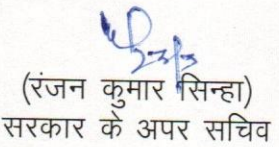 (रंजन कुमार सिन्हा)
सरकार के अपर सचिव